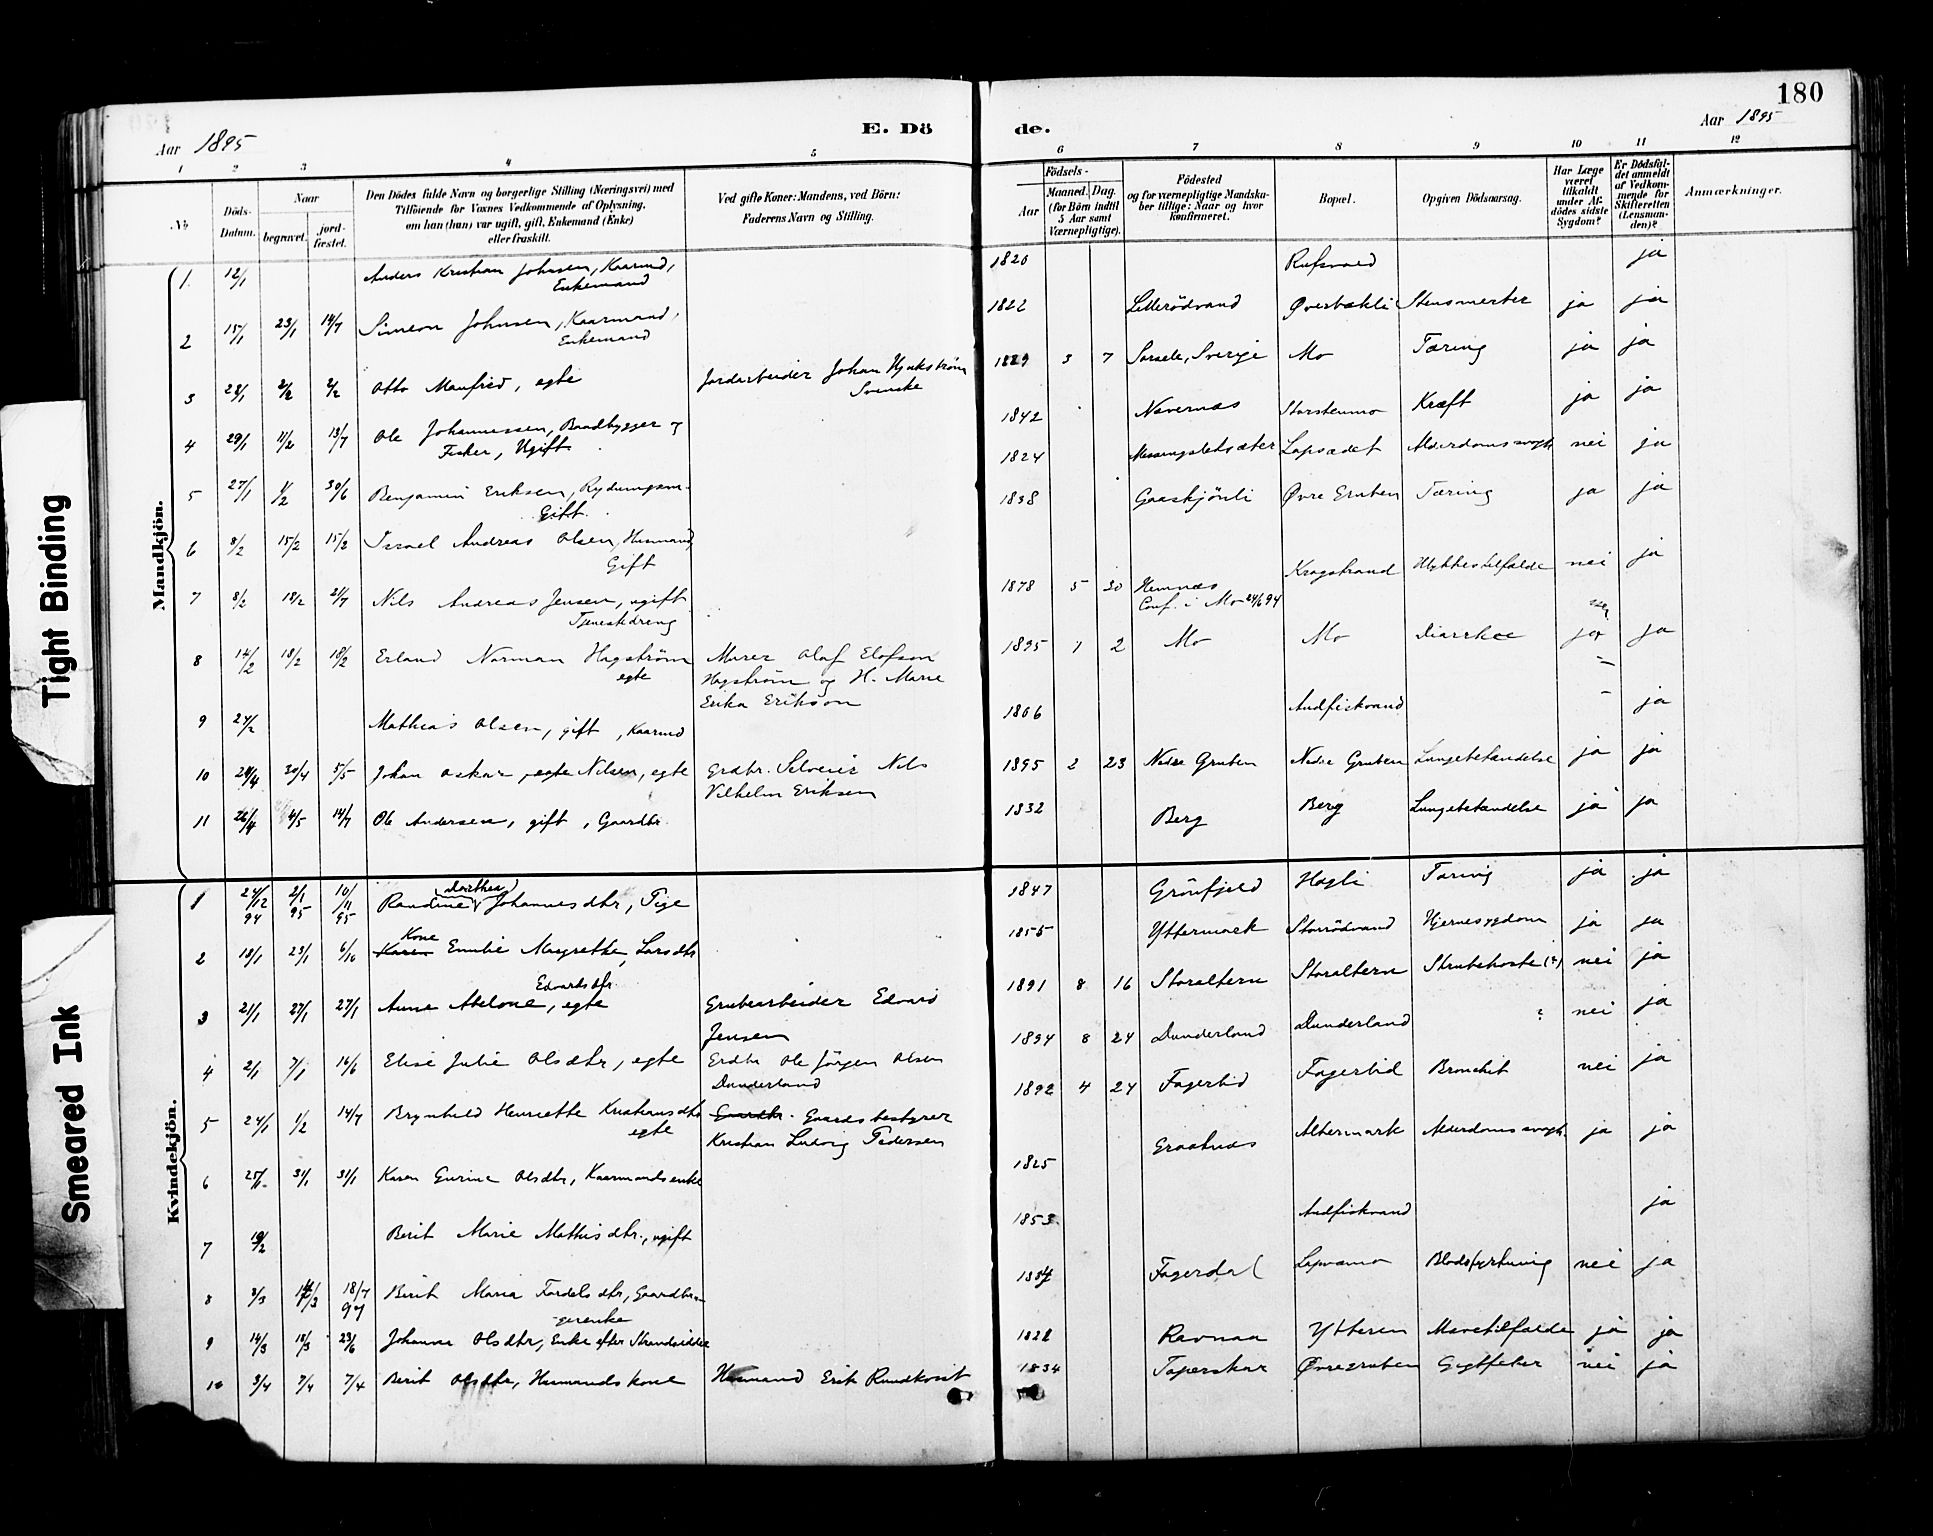 180
Aar 1895
E. Dö
de.
Aar 1895
1 2 3 4 5 6 7 8 9 10 11 12
No
Döds-Datum.
Naar
begravet.
jord-fæstet.
Den Dödes fulde Navn og borgerlige Stilling (Næringsvei) med
Tilföiende for Voxnes Vedkommende af Oplysning,
om han (hun) var ugift, gift, Enkemand (Enke)
eller fraskilt.
Ved gifte Koner: Mandens, ved Börn:
Faderens Navn og Stilling.
Födsels-
Aar
Maaned. Dag.
(for Börn indtil
5 Aar samt
Værnepligtige).
Födested
og for værnepligtige Mandska-
ber tillige: Naar og hvor
konfirmeret.
Bopæl.
Opgiven Dödsaarsag.
Har Læge
været
tilkaldt
under Af-
dödes sidste
Sygdom?
Er Dödsfal-
det anmeldt
af Vedkom-
mende for
Skifteretten
(Lensman-
den)?
Anmærkninger.
Mandkjön.
1 12/1 Anders Kristian Johnsen, Kaarmd, 1820 ja
Enkemand
2 15/1 23/1 14/7 Simeon Johnsen, Kaarmand, 1822 Øverbækli ja ja
Enkemand
3 28/1 2/2 2/2 Otto Manfred, egte Jordarbeider Johan 1889 3 7 Sorsele, Sverige Mo Tæring ja ja
Svenske
4 29/1 11/2 13/7 Ole Johannessen, Baadbygger og 1842 Nævernæs Storstenmo Kræft ja ja
Fisker, Ugift
5 27/1 1/2 30/6 Benjamin Eriksen, Rydningsm. 1824 Messingsletsæter Lapsædet Alderdomssvagh. nei ja
Gift
6 8/2 15/2 15/2 Israel Andreas Olsen, Husmand, 1838 Gaaskjönli Øvre Gruben Tæring ja ja
Gift
7 8/2 18/2 21/7 Nils Andreas Jensen, ugift 1878 5 30 Hemnæs Kragstrand Ulykkestilfælde nei ja
Tjenestdreng Conf. i Mo 24/6 94
8 14/2 18/2 18/2 Erland Norman Hagström Murer Olaf Elofson 1895 1 2 Mo Mo Diarrhee ja ja
egte Hagström og H. Marie
Erika Erikson
9 27/2 Mathias Olsen, gift, Kaarmd 1806 Andfiskvand ja
10 24/4 30/4 5/5 Johan Oskar, egte Nilsen, egte Grdbr. Selveier Nils 1895 2 23 Nedre Gruben Nedre Gruben Lungebetændelse ja ja
Vilhelm Eriksen
11 26/4 4/5 14/7 Ole Andersen, gift, Gaardbr. 1832 Berg Berg Lungebetændelse ja ja
Kvindekjön.
1 24/12 94 2/1 95 10/11 95 Randine Dorthea Johannesdtr, Pige 1847 Grönfjeld Hagli Tæring ja ja
2 18/1 23/1 6/10 Karen Kone Emilie Margrethe Larsdtr 1855 Yttermark Storrödvand Hjernesygdom ja ja
3 21/1 27/1 27/1 Anne Abelone Edvardsdtr, egte Grubearbeider Edvard 1891 8 16 Storaltern Storaltern Strubehoste (?) nei ja
Jensen
4 2/1 7/1 16/6 Elise Julie Olsdtr, egte Grdbr Ole Jörgen Olsen 1894 8 24 Dunderland Dunderland ? nei ja
Dunderland
5 24/1 1/2 14/7 Brynhild Henriette Kristiansdtr Gaardbr. Gaardsbestyrer 1892 4 24 Fagerlid Fagerlid Bronchit nei ja
egte Kristian Ludvig Pedersen
6 25/1 31/1 31/1 Karen Gurine Olsdtr, Kaarmandsenke 1825 Graatnæs Altermark Alderdomssvagh. ja ja
7 19/2 Berit Marie Mathisdtr., ugift 1853 Andfiskvand ja
8 3/3 11/3 18/7 97 Berit Maria Fordelsdtr, Gaardbru-
gerenke Fagerdal Blodstyrtning nei ja
9 14/3 18/3 23/6 Johanna Olsdtr, Enke efter Strandsidder 1828 Ravnaa Ytteren Mavetilfælde ja ja
10 3/4 7/4 7/4 Berit Olsdtr, Husmandskone Husmand Erik Rundkvist 1834 Øvregruben Gigtfeber nei ja
Tight Binding
Smeared Ink